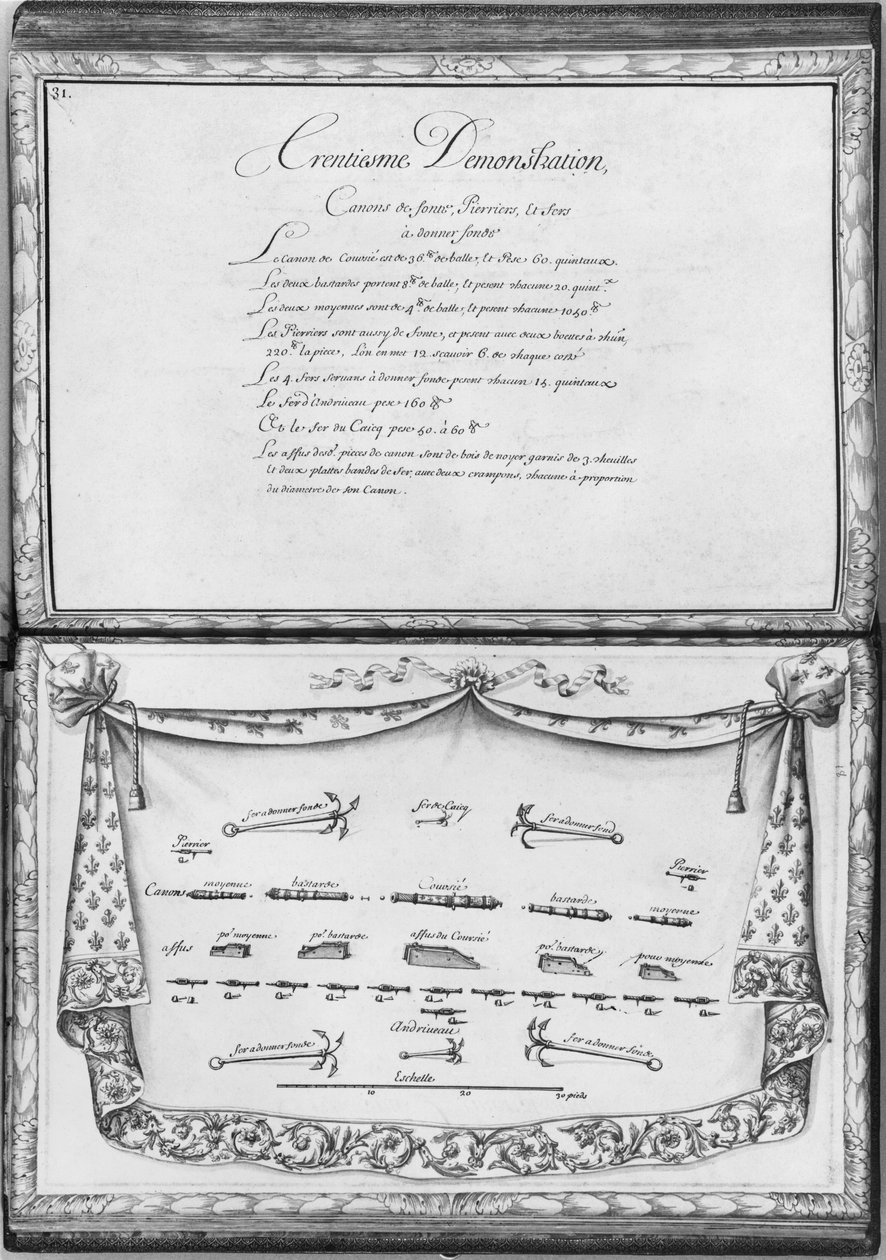 31.
Trentiesme Demonstration,
Canons de fonte, Pierriers, Et fers
à donner fonde
Le Canon de Couvsié est de 36.lb de balle, Et Pese 60. quintaux.
Les deux bastardes portent 8lb de balle, Et pesent chacune 20. quint.x
Les deux moyennes sont de 4lb de balle, Et pesent chacune 1050.lb
Les Pierriers sont aussy de fonte, et pesent avec deux boettes à chun,
220.lb la piece, L'on en met 12. sçavoir 6. de chaque costé
Les 4. fers servans à donner fonde pesent chacun 15. quintaux
Le fer d'Andriveau pese 160 lb
Et le fer du Caicq pese 50. à 60 lb
Les affus desd. pieces de canon sont de bois de noyer garnis de 3. cheuilles
Et deux plattes bandes de fer, avec deux crampons, chacune à proportion
du diametre de son Canon.
fer a donner fonde
fer de Caicq
fer a donner fond
Pierrier
Pierrier
Canons
moyenne
bastarde
Couvsié
bastarde
moyenne
affus
po.r moyenne
po.r bastarde
affus du Coursié
po.r bastarde
pour moyenne
fer a donner fonde
Andriveau
fer a donner fonde
Eschelle
10 20 30 pieds